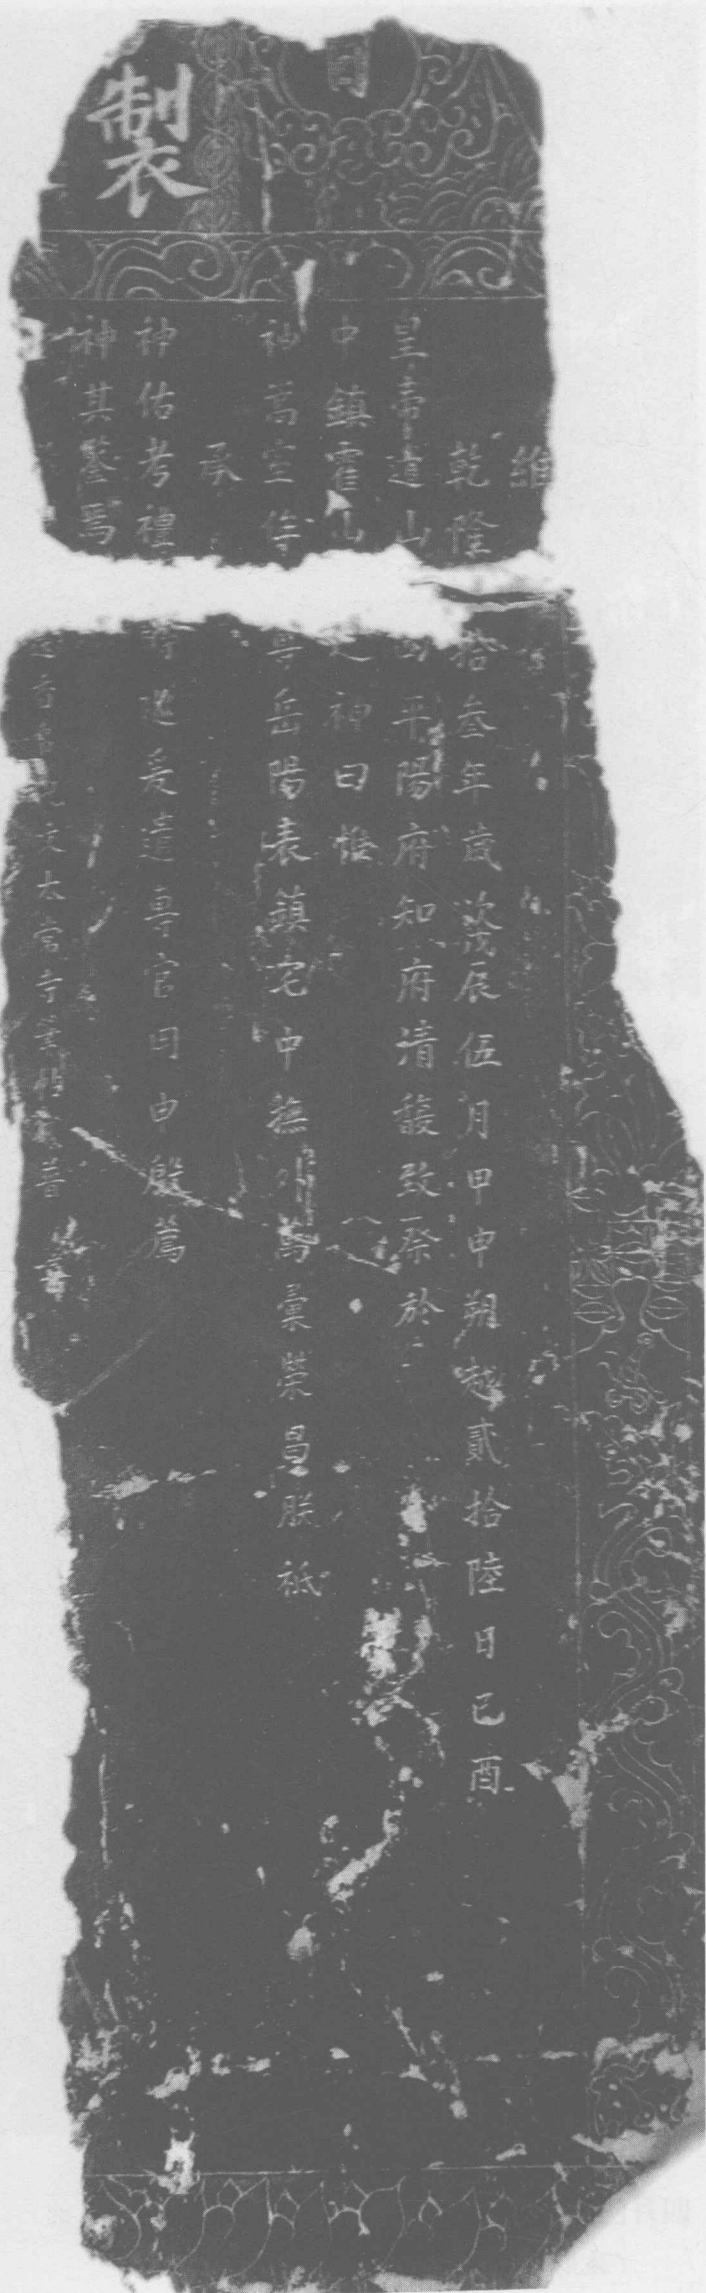 日
製
維
乾隆拾叁年歲次戊辰伍月甲申朔越貳拾陸日己酉
皇帝遣山 平陽府知府清馥致祭於
中鎮霍山之神曰惟
神嵩室侔尊岳陽表鎮宅中撫外萬彙榮昌朕祗
承
神佑考禮 爰遣專官用申殷薦
神其鑒焉
香帛 文太常寺